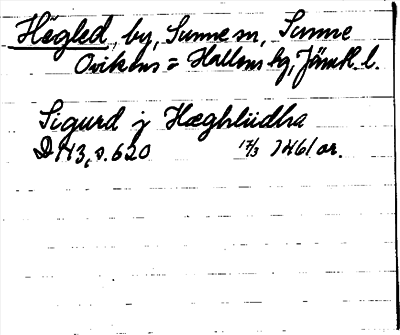 Högled, by, Sunne sn, Sunne
Ovikens = Hallens tg, Jämtl. l.
Sigurd j Hæghliidha
D H3, s. 620 17/3 1461 or.